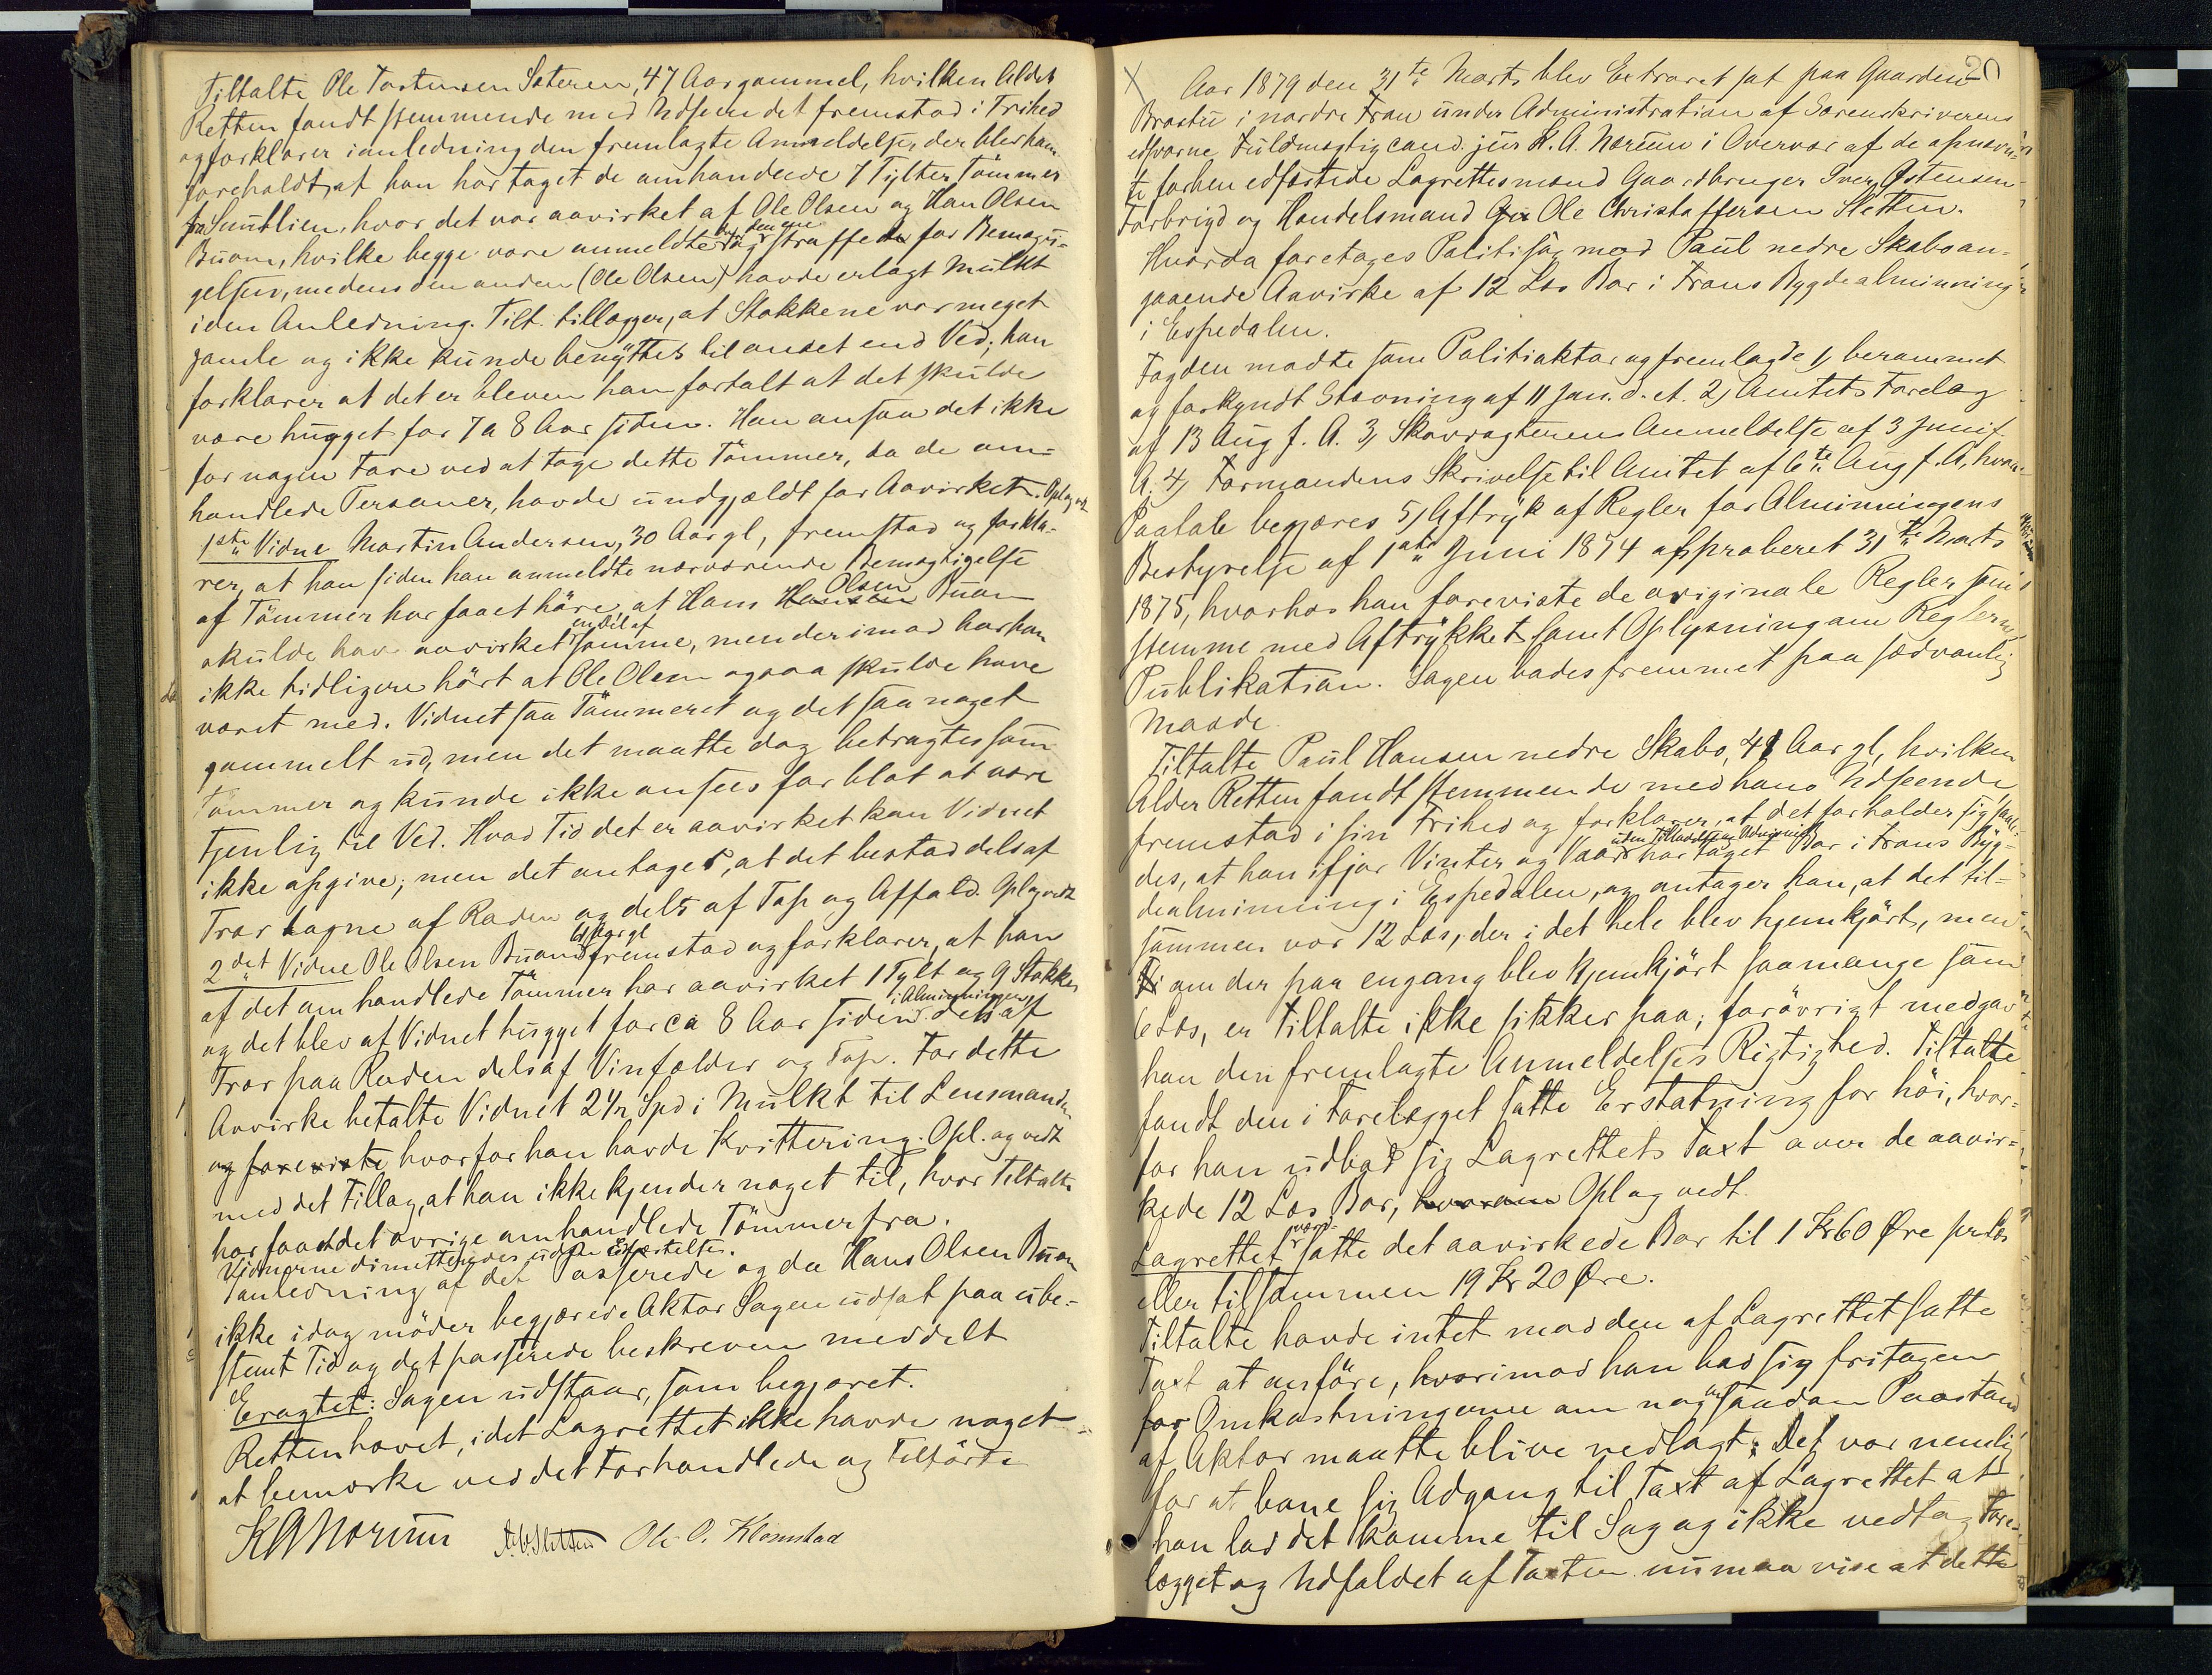 Tiltalte Ole Torstensen Sæteren, 47 Aar gammel, hvilken Alder
Retten fandt stemmende med Udseendet fremstod i Frihed
og forklarer i anledning den fremlagte Anmeldelse, der blev ham
foreholdt, at han har taget de omhandlede 7 Tylter Tömmer
fra Smutlien, hvor det var aavirket af Ole Olsen og Han Olsen
Buom, hvilke begge vare anmeldte og den ene straffede for Bemægti-
gelsen, medens den anden (Ole Olsen) havde erlagt Mulkt
i den Anledning. Tilt. tillægger, at Stokkene var meget
gamle og ikke kunde benyttes til andet end Ved; han
forklarer at det er bleven ham fortalt at det skulde
være hugget for 7 a 8 Aar siden. Han ansaa det ikke
for nogen Fare ved at tage dette Tömmer, da de om-
handlede Personer, havde undgjældt for Aavirket. Opl og v.
1ste Vidne Martin Andersen, 30 Aar gl, fremstod og forkla-
rer, at han siden han anmeldte nærværende Bemægtigelse
af Tömmer har faaet höre, at Hans Hansen Olsen Buom
skulde have aavirket en Del af samme, men derimod har han
ikke tidligere hört at Ole Olsen ogsaa skulde have
været med. Vidnet saa Tömmeret og det saa noget
gammelt ud, men det maatte dog betragtes som
Tömmer og kunde ikke ansees for blot at være
tjenlig til Ved. Hvad Tid det er aavirket kan Vidnet
ikke opgive; men det antages, at det bestod dels af
Trær tagne af Roden og dels af Top og Affald. Opl og vedt
2det Vidne Ole Olsen Buom Aar gl fremstod og forklarer, at han
af det omhandlede Tömmer har aavirket 1 Tylt og 9 Stokke
og det blev af Vidnet hugget for ca 8 Aar siden i Alminningen dels af
Trær paa Roden dels af Vinfælder og Top. For dette
Aavirke betalte Vidnet 2 1/2 Spd i Mulkt til Lensmanden
og foreviste hvorfor han havde Kvittering. Opl. og vedt
med det Tillæg, at han ikke kjender noget til, hvor Tiltalte
har faaet det övrige omhandlede Tömmer fra.
Vidnerne dimitteredes
I anledning af det Passerede og da Hans Olsen Buom
ikke idag möder begjærede Aktor Sagen udsat paa ube-
stemt Tid og det passerede beskreven meddelt
Eragtet: Sagen udstaar, som begjæret.
Retten hævet, idet Lagrettet ikke havde noget
at bemærke ved det Forhandlede og Tilförte
KANorum O. C. Sletten Ole O. Klomstad
20
X Aar 1879 den 31te Marts blev Extraret sat paa Gaarden
Brostu i nordre Fron under Administration af Sorenskriverens
edsvorne Fuldmægtig cand. jur K. A. Norum i Overvær af de opnævn-
te forhen edfæstede Lagrettesmænd Gaardbruger Iver Østensen
Forbrigd og Handelsmand Ole Christoffersen Sletten.
Hvorda foretoges Politisag mod Paul nedre Skabo an-
gaaende Aavirke af 12 Læs Bar i Frons Bygdealminning
i Espedalen.
Fogden mødte som Politiaktor og fremlagde 1, berammet
og forkyndt Stævning af 11 Jan. d. A. 2, Amtets Forelæg
af 13 Aug f. A. 3, Skovvogterens Anmeldelse af 3 Juni f.
A. 4, Formandens Skrivelse til Amtet af 6te Aug f. A, hvori
Paatale begjæres 5, Aftryk af Regler for Alminningens
Bestyrelse af 1ste Juni 1874 approberet 31te Marts
1875, hvorhos han foreviste de originale Regler som
stemme med Aftrykket samt Oplysning om Reglernes
Publikation. Sagen bades fremmet paa sædvanlig
Maade
Tiltalte Paul Hansen nedre Skabo, 48 Aar gl, hvilken
Alder Retten fandt stemmende med hans Udseende
fremstod i sin Frihed og forklarer, at det forholder sig saale-
des, at han ifjor Vinter og Vaar uden Tilladelse og Udvisning har taget Bar i Frons Byg-
dealminning i Espedalen, og antager han, at det til-
sammen var 12 Læs, der i det hele blev hjemkjört, men
om der paa engang blev hjemkjört saamange som
6 Læs, er Tiltalte ikke sikker paa; forövrigt medgav
han den fremlagte Anmeldelses Rigtighed. Tiltalte
fandt den i Forelægget satte Erstatning for höi, hvor-
for han udbad sig Lagrettets Taxt over de aavir-
kede 12 Læs Bar, hvorom Opl og vedt.
Lagrettet værdsatte det aavirkede Bar til 1 Kr 60 Øre pr Læs
eller tilsammen 19 Kr 20 Øre.
Tiltalte havde intet mod den af Lagrettet satte
Taxt at anföre, hvorimod han bad sig fritagen
for Omkostningerne om nogen saadan Paastand
af Aktor maatte blive nedlagt; Det var nemlig
for at bane sig Adgang til Taxt af Lagrettet at
han lod det komme til Sag og ikke vedtog Fore-
lægget og Udfaldet af Taxten nu maa vise at dette